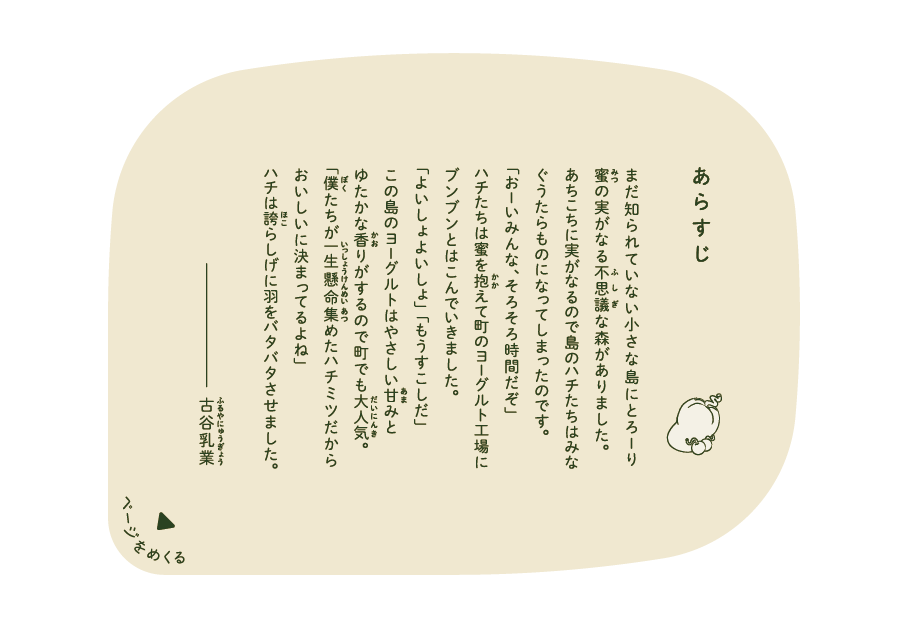 あらすじ
まだ知られていない小さな島にとろーり
蜜の実がなる不思議な森がありました。
あちこちに実がなるので島のハチたちはみな
ぐうたらものになってしまったのです。
「おーいみんな、そろそろ時間だぞ」
ハチたちは蜜を抱えて町のヨーグルト工場に
ブンブンとはこんでいきました。
「よいしょよいしょ」「もうすこしだ」
この島のヨーグルトはやさしい甘みと
ゆたかな香りがするので町でも大人気。
「僕たちが一生懸命集めたハチミツだから
おいしいに決まってるよね」
ハチは誇らしげに羽をバタバタさせました。
古谷乳業
ページをめくる